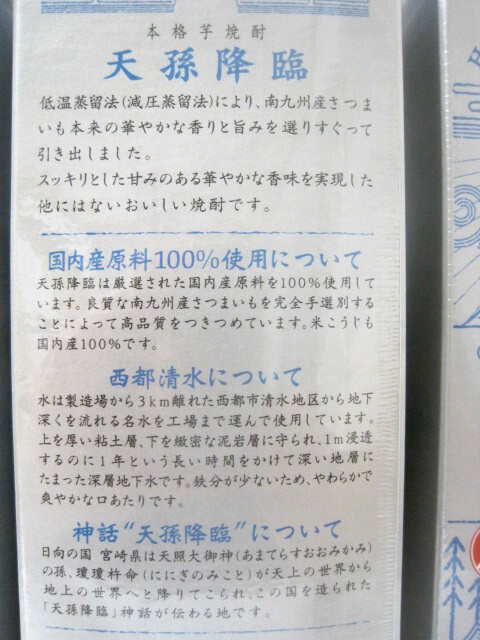 本格芋焼酎
天孫降臨
低温蒸留法(減圧蒸留法)により、南九州産さつま
いも本来の華やかな香りと旨みを選りすぐって
引き出しました。
スッキリとした甘みのある華やかな香味を実現した
他にはないおいしい焼酎です。
国内産原料100%使用について
天孫降臨は厳選された国内産原料を100%使用して
います。良質な南九州産さつまいもを完全手選別する
ことによって高品質をつきつめています。米こうじも
国内産100%です。
西都清水について
水は製造場から3km離れた西都市清水地区から地下
深くを流れる名水を工場まで運んで使用しています。
上を厚い粘土層、下を緻密な泥岩層に守られ、1m浸透
するのに1年という長い時間をかけて深い地層に
たまった深層地下水です。鉄分が少ないため、やわらかで
爽やかな口あたりです。
神話“天孫降臨”について
日向の国 宮崎県は天照大御神(あまてらすおおみかみ)
の孫、瓊瓊杵命(ににぎのみこと)が天上の世界から
地上の世界へと降りてこられ、この国を造られた
「天孫降臨」神話が伝わる地です。